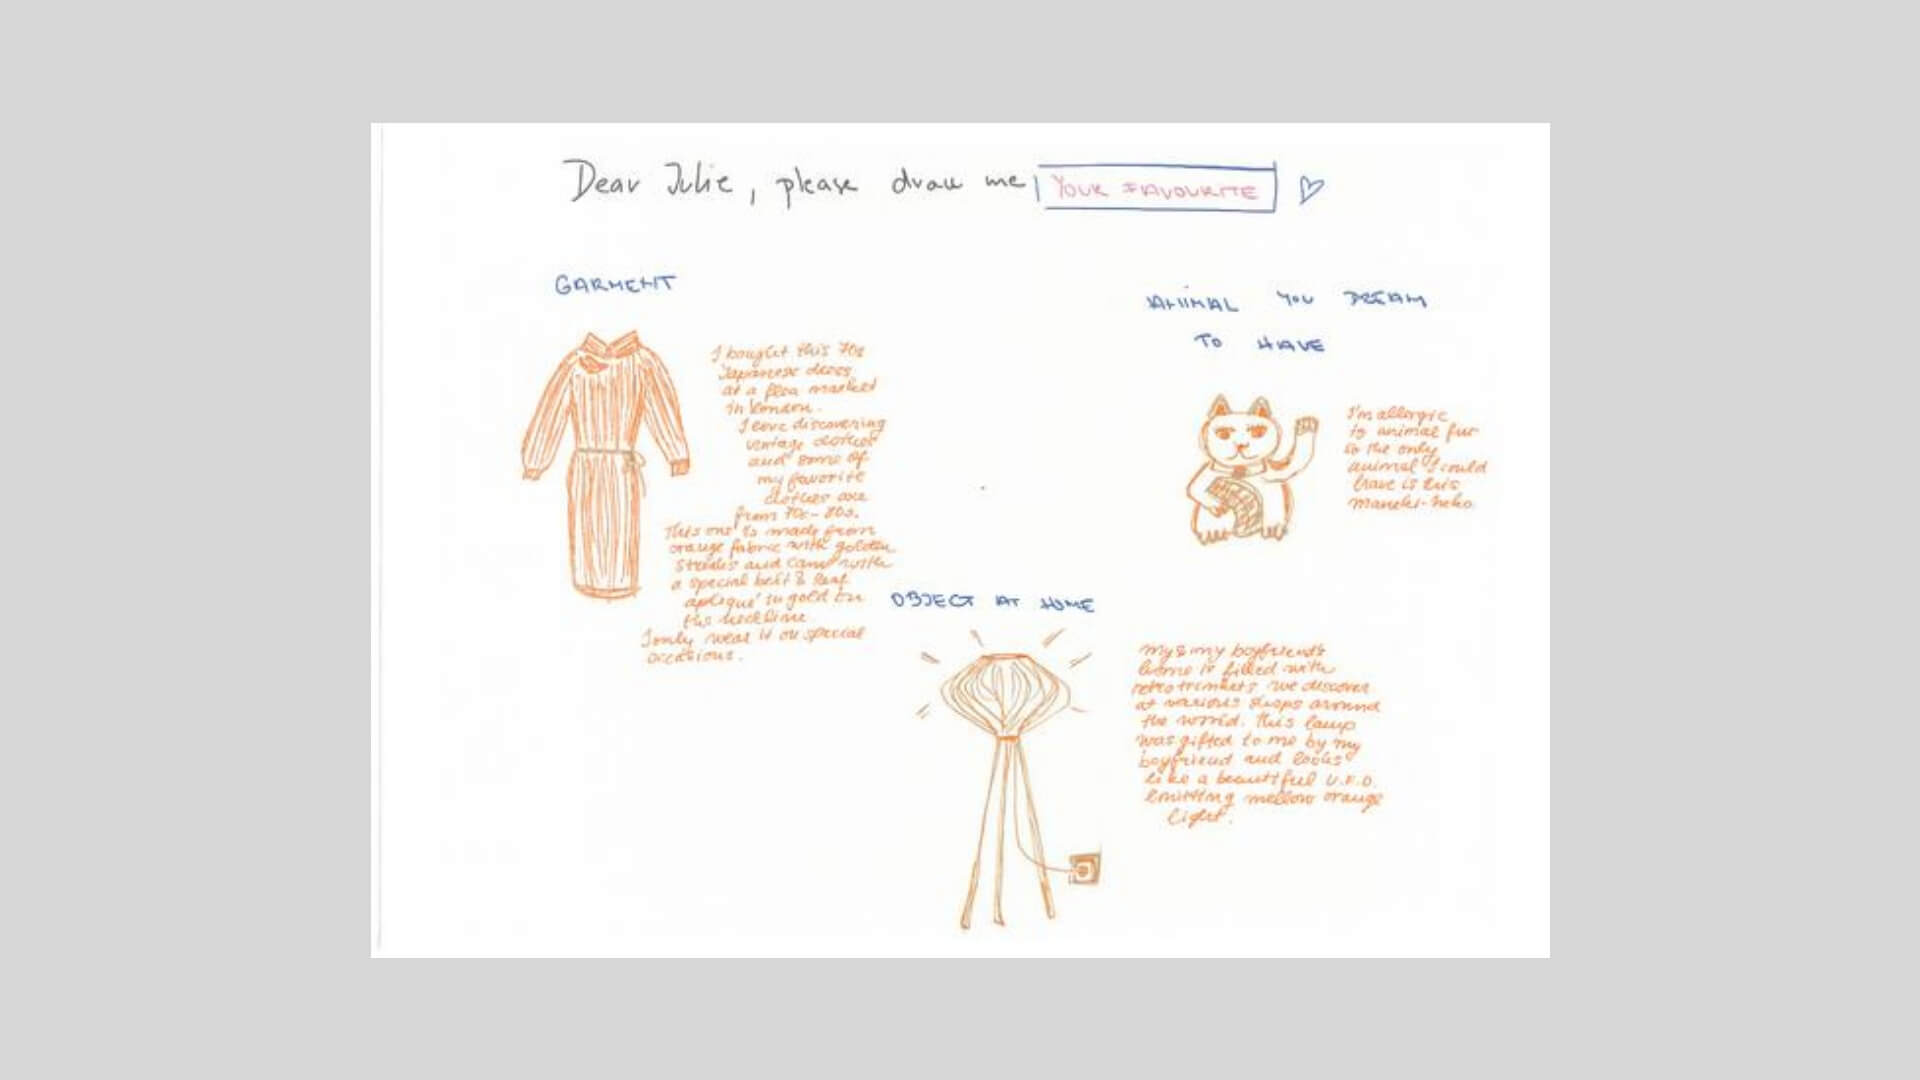 Dear Julie, please draw me YOUR FAVOURITE
GARMENT
I bought this 70s
Japanese dress
at a flea market
in London.
I love discovering
vintage clothes
and some of
my favorite
clothes are
from 70s-80s.
This one is made from
orange fabric with golden
streaks and came with
a special belt & leaf
aplique in gold on
the neckline.
I only wear it on special
occasions.
ANIMAL YOU DREAM
TO HAVE
I'm allergic
to animal fur
so the only
animal I could
have is this
maneki-neko.
OBJECT AT HOME
my & my boyfriend's
home is filled with
retro trinkets we discover
at various shops around
the world. This lamp
was gifted to me by my
boyfriend and looks
like a beautiful U.F.O.
emitting mellow orange
light.